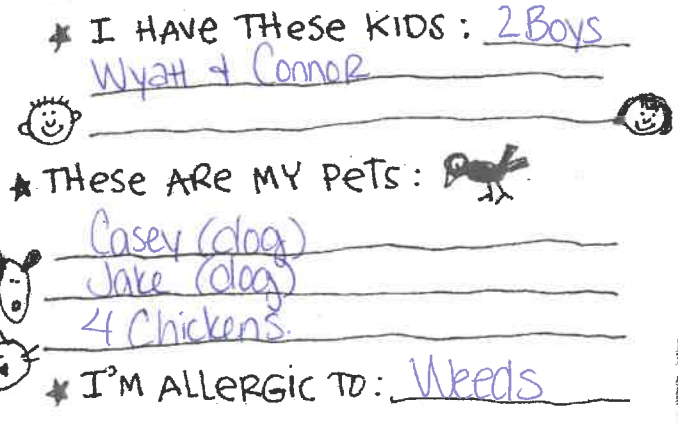 ★ I HAVE THese KIDS: 2 Boys
Wyatt & Connor
★ THese ARe MY PeTS:
Casey (dog)
Jake (dog)
4 Chickens.
★ I'M ALLeRGIC TO: Weeds